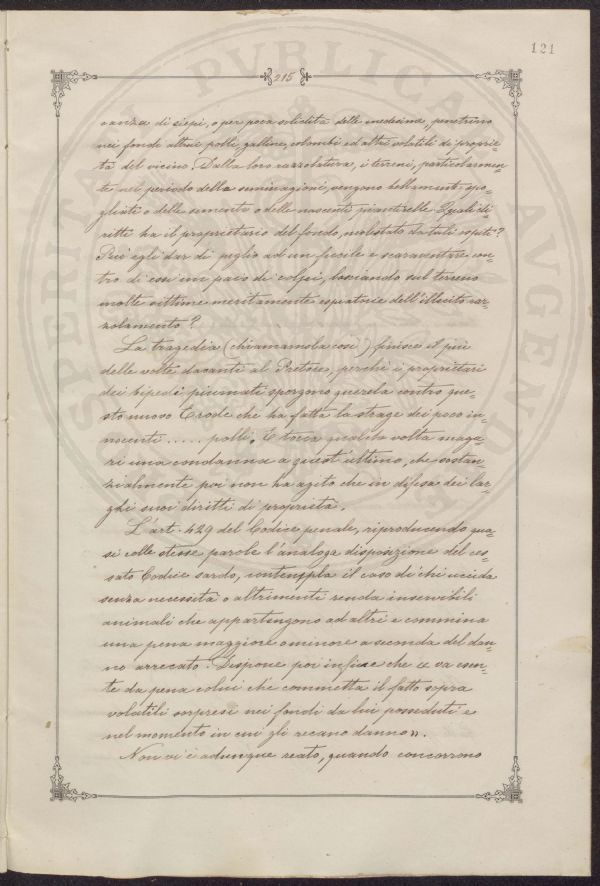 121
215
vanza di siepi, o per poca solidità delle medesime, penetrino
nei fondi altrui polli, galline, colombi ed altri volatili di proprie=
tà del vicino. Dalla loro razzolatura, i terreni, particolarmen=
te nel periodo della seminagioni, vengono bellamente spo=
gliati o delle sementa o delle nascenti pianticelle. Quali di=
ritti ha il proprietario del fondo, molestato da tali ospiti?
Può egli dar di piglio ad un fucile e scaraventare con=
tro di essi un paio di colpi, lasciando sul terreno
molte vittime meritamente espiatrici dell'illecito raz=
zolamento?
La tragedia (chiamamola così) finisce il più
delle volte davanti al Pretore, perchè i proprietari
dei bipedi piumati sporgono querela contro que=
sto nuovo Erode che ha fatta la strage dei poco in=
nocenti ..... polli. E tocca qualche volta maga=
ri una condanna a quest'ultimo, che sostan=
zialmente poi non ha agito che in difesa dei lar=
ghi suoi diritti di proprietà.
L'art. 429 del Codice penale, riproducendo qua=
si colle stesse parole l'analoga disposizione del ces=
sato Codice sardo, contempla il caso di chi uccida
senza necessità o altrimenti renda inservibili
animali che appartengono ad altri e commina
una pena maggiore o minore a seconda del dan=
no arrecato. Dispone poi infine che « va esen=
te da pena colui che commetta il fatto sopra
volatili sorpresi nei fondi da lui posseduti e
nel momento in cui gli recano danno ».
Non vi è adunque reato, quando concorrono
PVBLICAE AVGENDAE PROSPERITATI